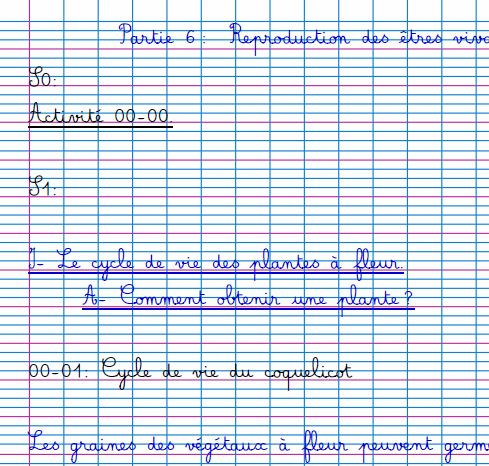 Partie 6 : Reproduction des êtres
S0:
Activité 00-00.
S1:
I- Le cycle de vie des plantes à fleur.
A- Comment obtenir une plante ?
00-01: Cycle de vie du coquelicot
Les graines des végétaux à fleur peuvent